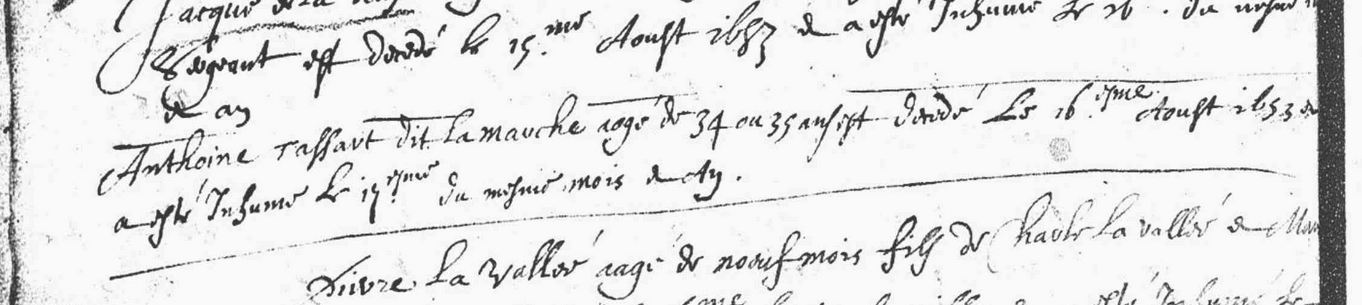 Jacque de la
Sergeant est decedé le 15.me Aoust 1653 & a esté Inhumé Le 16. du mesme
& an
Anthoine rassart dit La marche aagé de 34 ou 35 ans est decedé Le 16.esme Aoust 1653 &
a esté Inhumé Le 17.esme du mesme mois & An.
La Vallée aagé de noeuf mois fils de Charle La vallée &
esté Inhumé Le